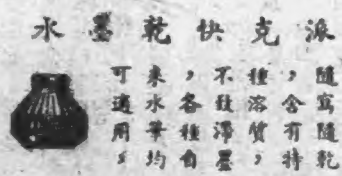 派克快乾墨水
隨寫隨乾
，含有特
種溶質，
不致滯墨
，各種自
來水筆均
可適用。